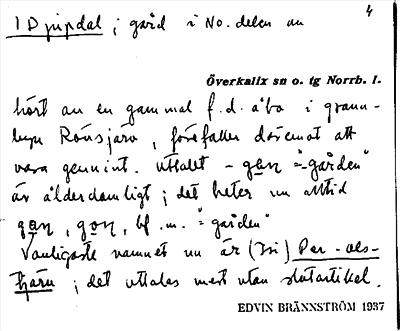 1 Djupdal ; gård i No. delen av
4
Överkalix sn o. tg Norrb. l.
hört av en gammal f.d. åbo i grann-
byn Rönsjärv, förefaller däremot att
vara genuint. Uttalet - gan "-gården"
är ålderdomligt ; det heter nu alltid
gan, gon, bf. m. = "gården"
Vanligaste namnet nu är (Isi) Per-ols-
tjärn ; det uttalas mest utan slutartikel.
EDVIN BRÄNNSTRÖM 1937